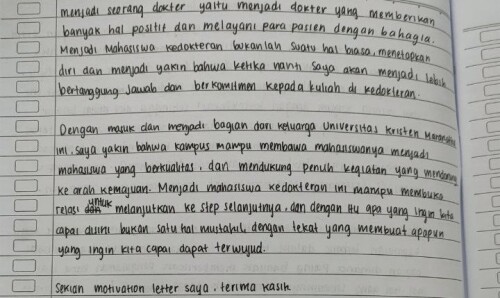 menjadi seorang dokter yaitu menjadi dokter yang memberikan
banyak hal positif dan melayani para pasien dengan bahagia.
Menjadi Mahasiswa kedokteran bukanlah suatu hal biasa, menetapkan
diri dan menjadi yakin bahwa ketika nanti saya akan menjadi lebih
bertanggung jawab dan berkomitmen kepada kuliah di kedokteran.
Dengan masuk dan menjadi bagian dari keluarga Universitas Kristen
ini, saya yakin bahwa kampus mampu membawa mahasiswanya menjadi
mahasiswa yang berkualitas, dan mendukung penuh kegiatan yang mendorong
ke arah kemajuan. Menjadi mahasiswa kedokteran ini mampu membuka
relasi untuk melanjutkan ke step selanjutnya, dan dengan itu apa yang ingin kita
capai disini bukan satu hal mustahil, dengan tekat yang membuat apapun
yang ingin kita capai dapat terwujud.
Sekian motivation letter saya, terima kasih